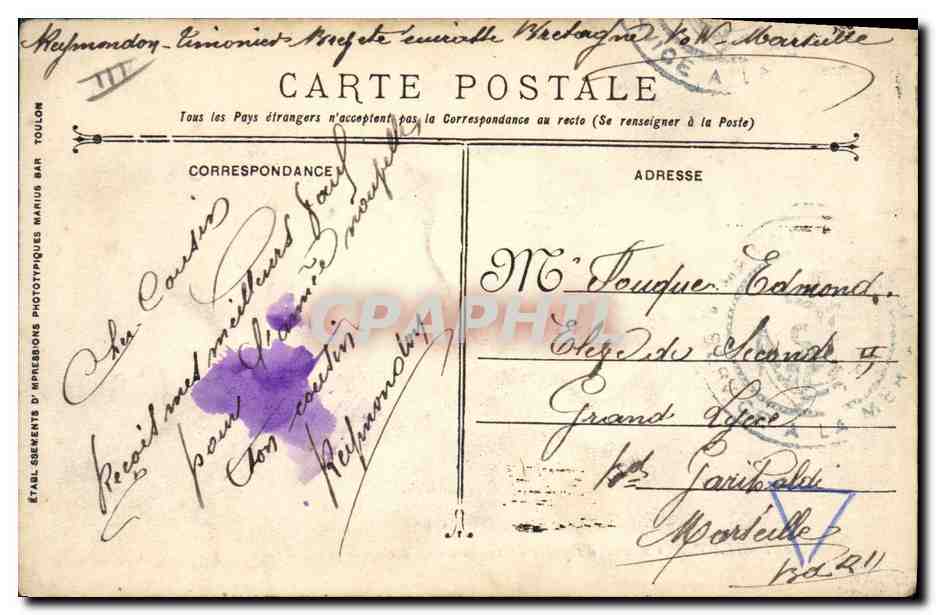 Reymondon Timonier Brefeté cuirassé Bretagne Marseille
III
CARTE POSTALE
Tous les Pays étrangers n'acceptent pas la Correspondance au recto (Se renseigner à la Poste)
ÉTABLISSEMENTS D'IMPRESSIONS PHOTOTYPIQUES MARIUS BAR TOULON
CORRESPONDANCE
Cher Cousin
Reçois mes meilleurs
pour l'année nouvelle
ton cousin
Reymondon
ADRESSE
Mr Fouque Edmond.
Elève de Seconde
Grand Lycée
Bd Garibaldi
Marseille
CPAPHIL
SERVICE A LA MER